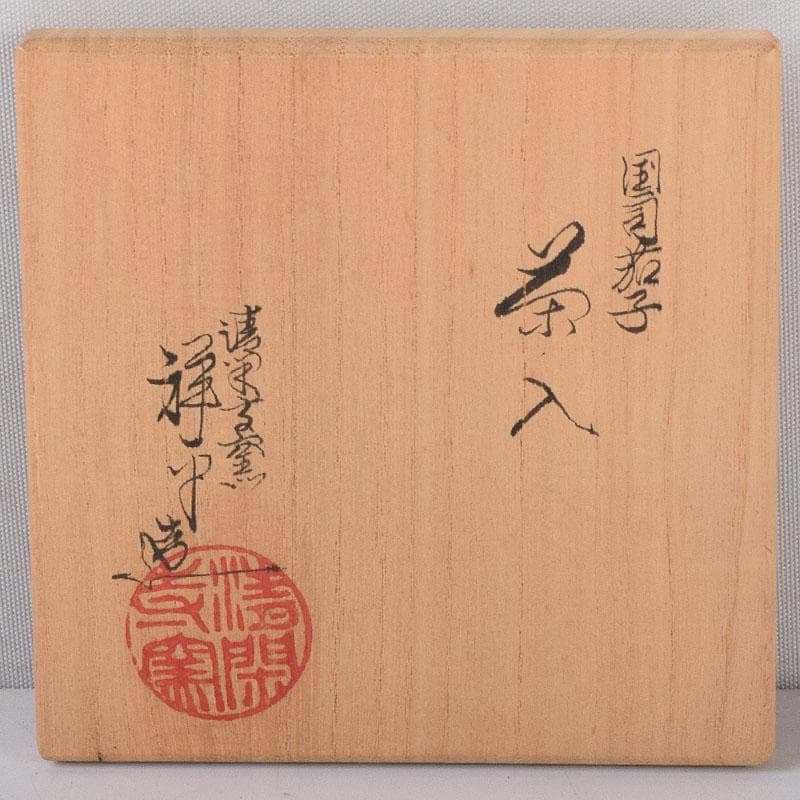 国司茄子
茶入
清閑寺窯
祥平造
清閑寺窯